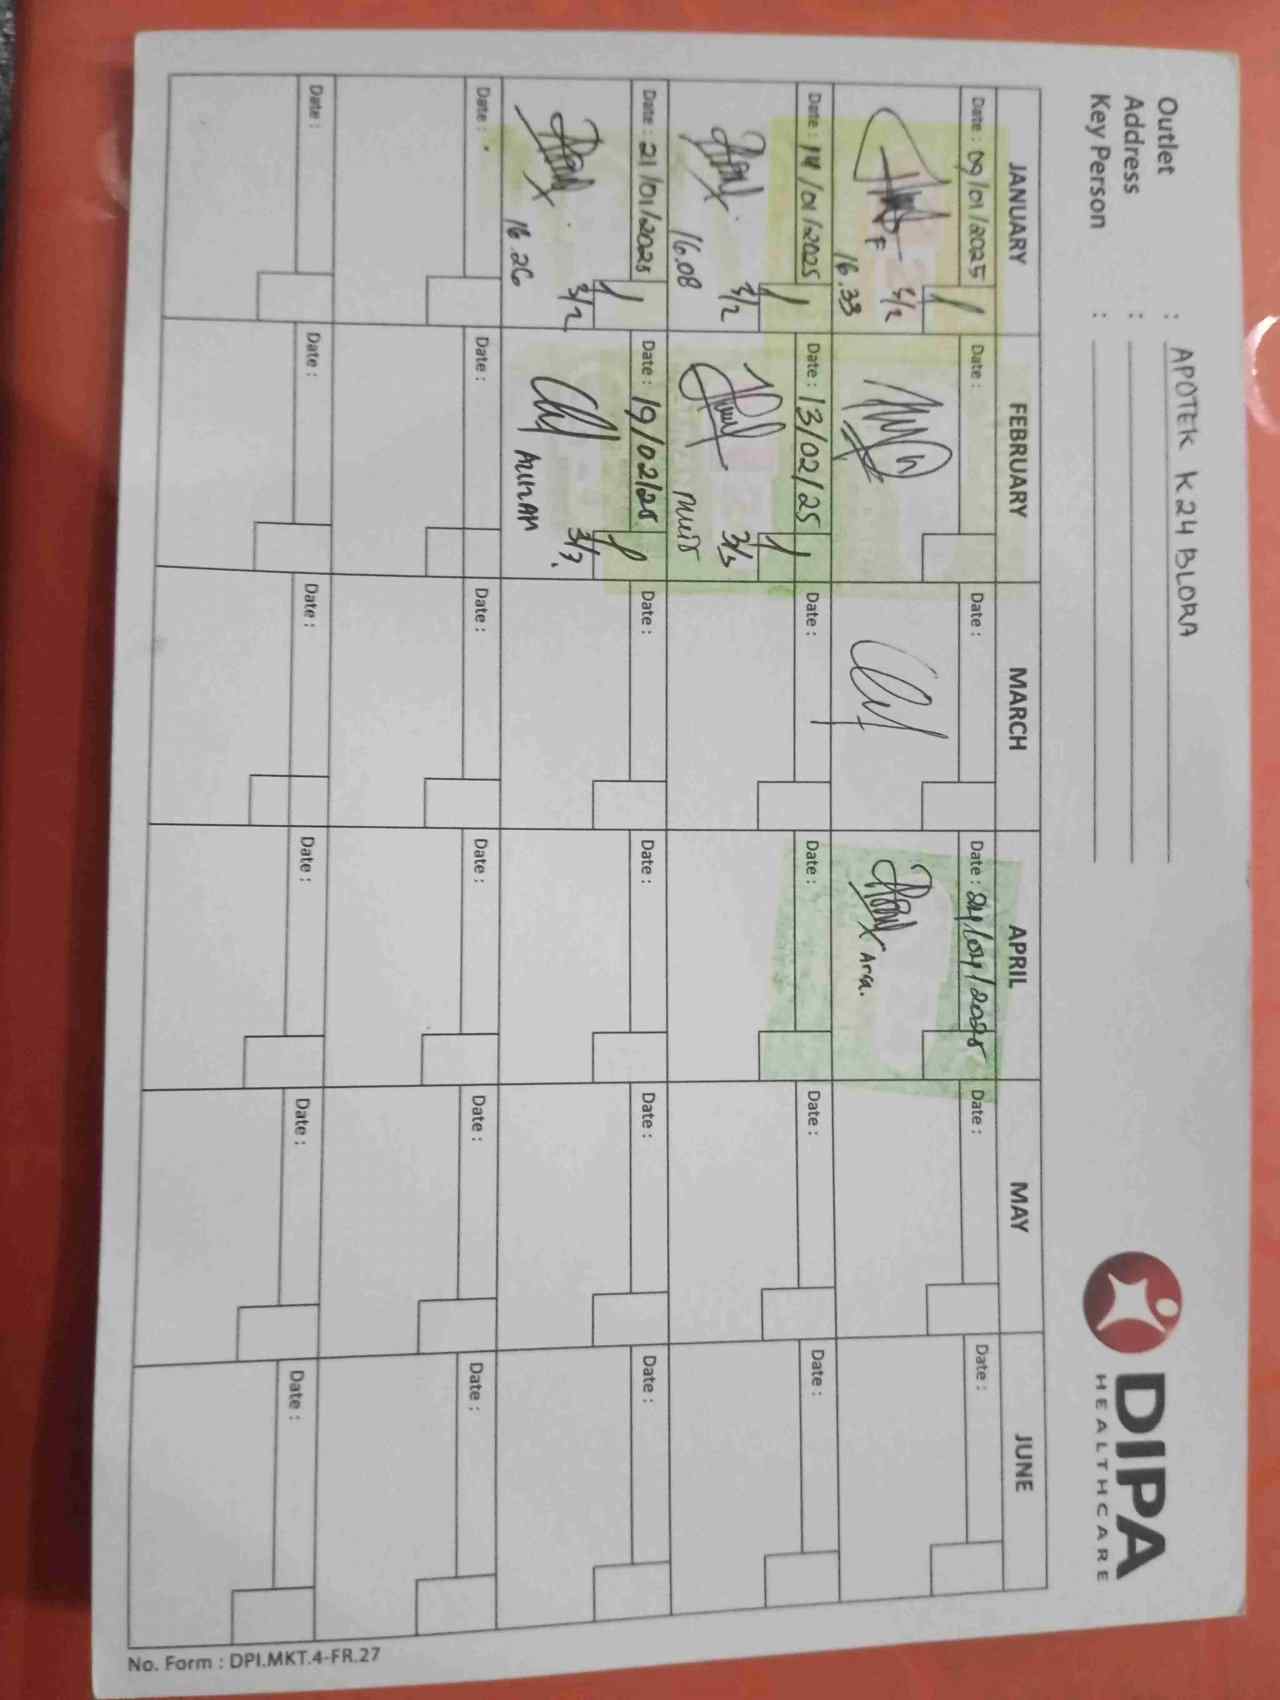 Outlet : APOTEK K24 BLORA
Address :
Key Person :
DIPA
HEALTHCARE
JANUARY FEBRUARY MARCH APRIL MAY JUNE
Date : 09/01/2025 Date : Date : Date : 24/04/2025 Date : Date :
1
F
16.33
Arga.
Date : 14/01/2025 Date : 13/02/25 Date : Date : Date : Date :
1 1
3/2 3/3
16.08
Date : 21/01/2025 Date : 19/02/25 Date : Date : Date : Date :
1 1
3/2
16.26
Date : Date : Date : Date : Date : Date :
Date : Date : Date : Date : Date : Date :
No. Form : DPI.MKT.4-FR.27